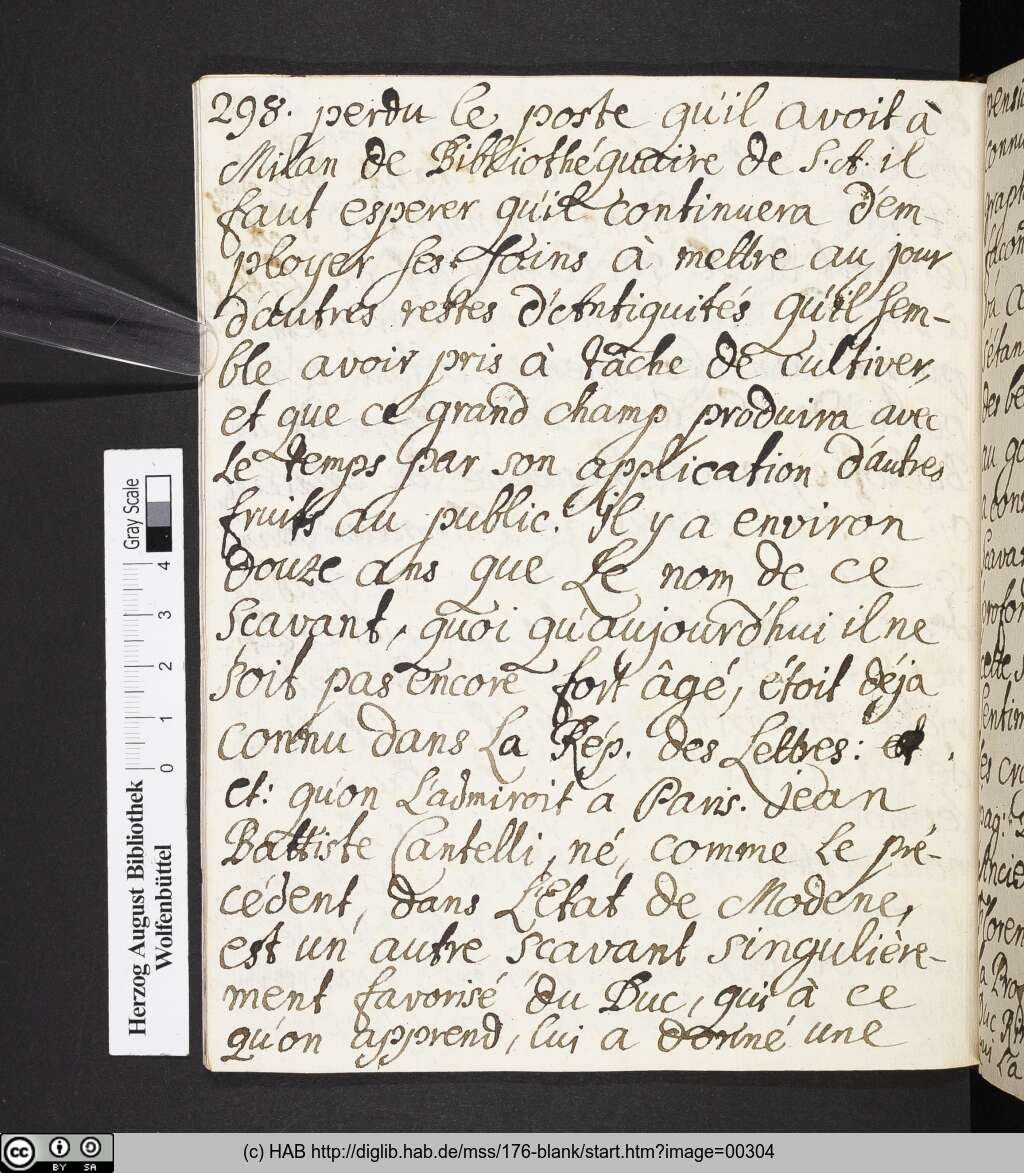 298. perdu le poste qu'il avoit à
Milan de Bibliothéquaire de S.A. il
faut esperer qu'il continuera d'em-
ployer ses soins à mettre au jour
d'autres restes d'Antiquités qu'il sem-
ble avoir pris à tâche de cultiver,
et que ce grand champ produira avec
le temps par son application d'autres
fruits au public. Il y a environ
douze ans que le nom de ce
scavant, quoi qu'aujourd'hui il ne
soit pas encore fort âgé, étoit déja
connu dans la Rép. des Lettres: et
et: qu'on l'admiroit a Paris. jean
Battiste Cantelli, né, comme le pré-
cédent, dans l'Etat de Modene,
est un autre scavant singulière-
ment favorisé du Duc, qui à ce
qu'on apprend, lui a donné une
Gray Scale
0 1 2 3 4
Herzog August Bibliothek
Wolfenbüttel
cc BY SA
(c) HAB http://diglib.hab.de/mss/176-blank/start.htm?image=00304